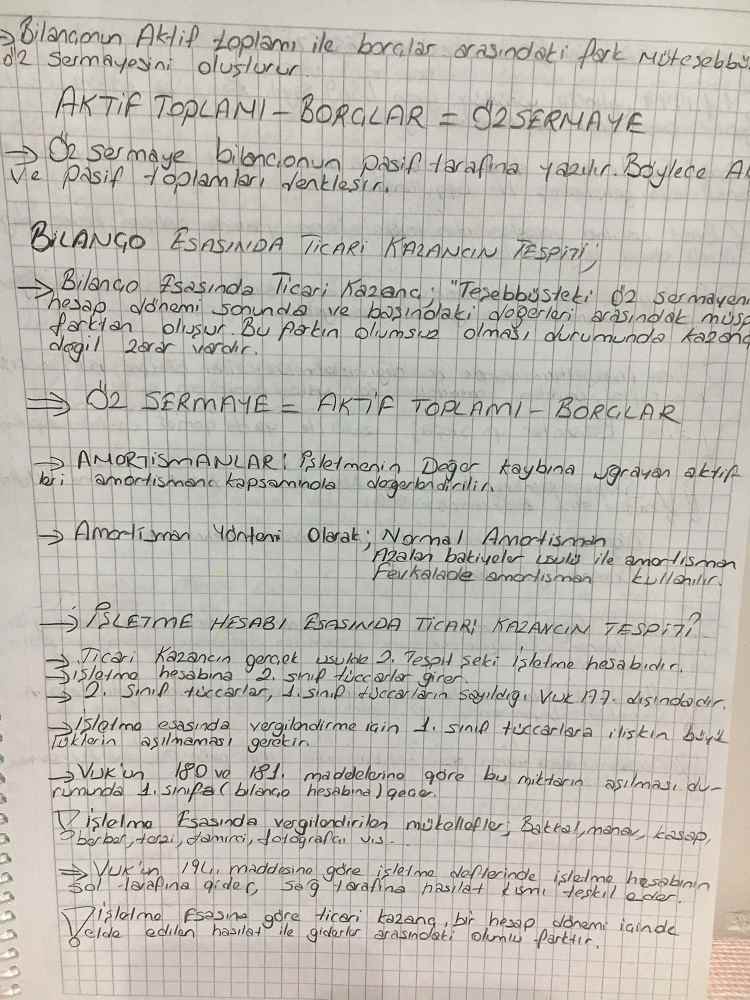 → Bilançonun Aktif toplamı ile borçlar arasındaki fark Müteşebbü
öz sermayesini oluşturur.
AKTİF TOPLAMI - BORÇLAR = ÖZSERMAYE
→ Öz sermaye bilançonun pasif tarafına yazılır. Böylece A
ve pasif toplamları denkleşir.
BİLANÇO ESASINDA TİCARİ KAZANCIN TESPİTİ;
→ Bilanço Esasında Ticari Kazanç; "Teşebbüsteki öz sermayen
hesap dönemi sonunda ve başındaki değerleri arasındak müsp
farktan oluşur. Bu farkın olumsuz olması durumunda kazanç
değil zarar vardır.
⇒ ÖZ SERMAYE = AKTİF TOPLAMI - BORÇLAR
→ AMORTİSMANLAR: İşletmenin Değer kaybına uğrayan aktif
leri amortisman kapsamında değerlendirilir.
→ Amortisman Yöntemi Olarak; Normal Amortisman
Azalan bakiyeler usulü ile amortisman
Fevkalade amortisman kullanılır.
→ İŞLETME HESABI ESASINDA TİCARİ KAZANCIN TESPİTİ?
→ Ticari Kazancın gerçek usulde 2. Tespit şekli işletme hesabıdır.
→ işletme hesabına 2. sınıf tüccarlar girer.
→ 2. Sınıf tüccarlar, 1. sınıf tüccarların sayıldığı VUK 177. dışındadır.
→ İşletme esasında vergilendirme için 1. sınıf tüccarlara ilişkin büyük
lüklerin aşılmaması gerekir.
→ Vuk'un 180 ve 181. maddelerine göre bu miktarın aşılması du-
rumunda 1. sınıfa (bilanço hesabına) geçer.
! işletme Esasında vergilendirilen mükellefler; Bakkal, manav, kasap,
berber, terzi, demirci, fotoğrafçı v.s...
⇒ Vuk'un 194. maddesine göre işletme defterinde işletme hesabının
sol tarafına gider, sağ tarafına hasılat kısmı teşkil eder.
! işletme Esasına göre ticari kazanç, bir hesap dönemi içinde
elde edilen hasılat ile giderler arasındaki olumlu farktır.